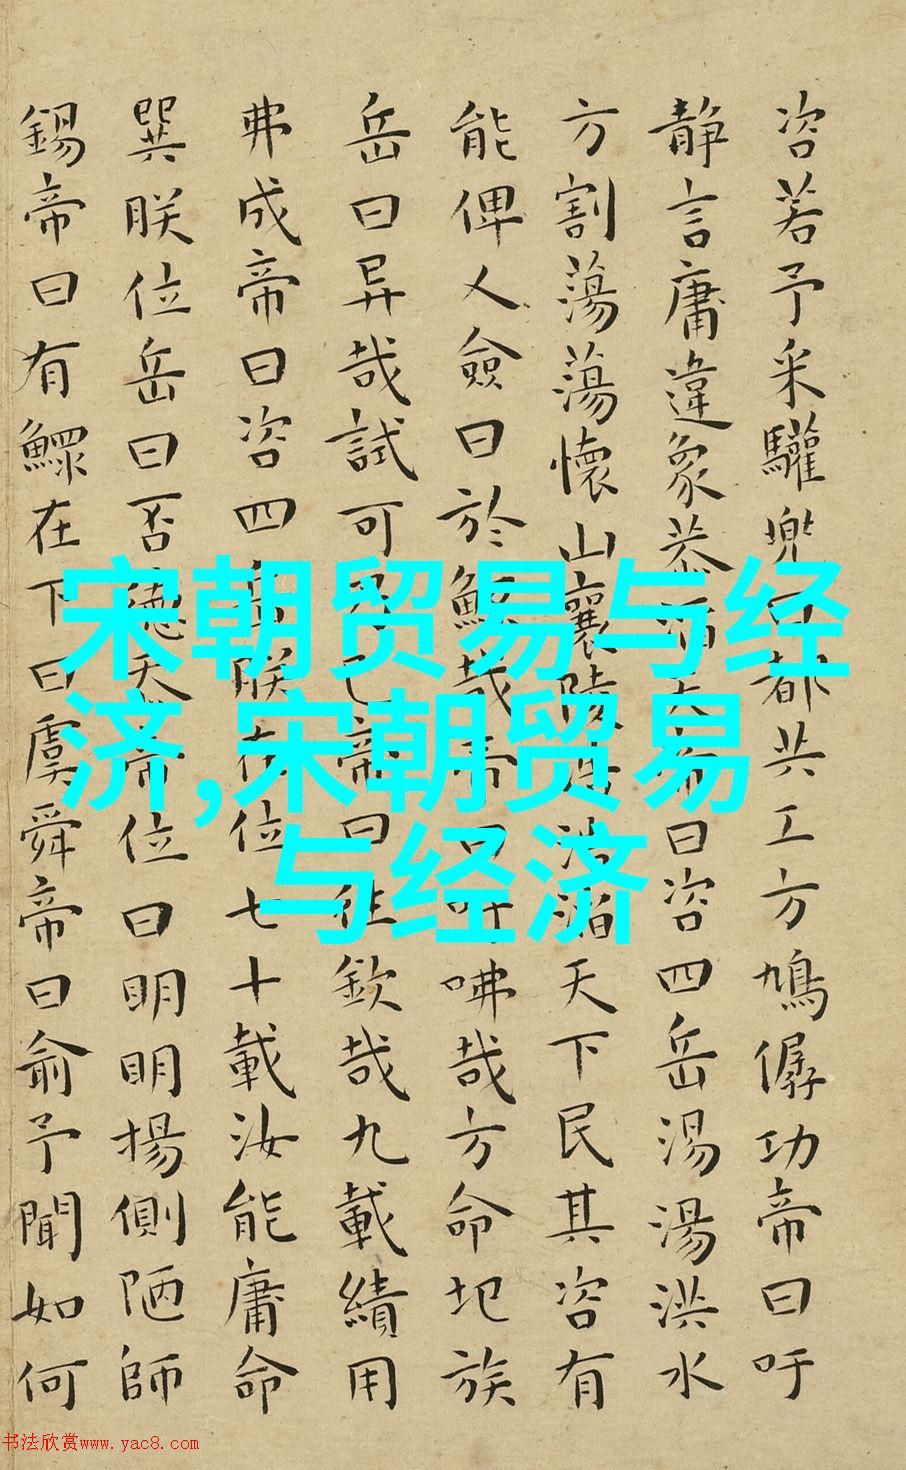 咨若予采驩兜曰都共工方鳩僝功帝曰吁
静言庸違象恭滔天帝曰咨四岳湯湯洪水
方割蕩蕩懷山襄陵浩浩滔天下民其咨有
能俾人僉曰於鯀哉帝曰吁咈哉方命圮族
岳曰异哉試可乃已帝曰往欽哉九載績用
弗成帝曰咨四岳朕在位七十載汝能庸命
巽朕位岳曰否德忝帝位曰明明揚側陋師
錫帝曰有鰥在下曰虞舜帝曰俞予聞如何
宋朝贸易与经
济,宋朝贸易
与经济
书法欣赏www.yac8.com